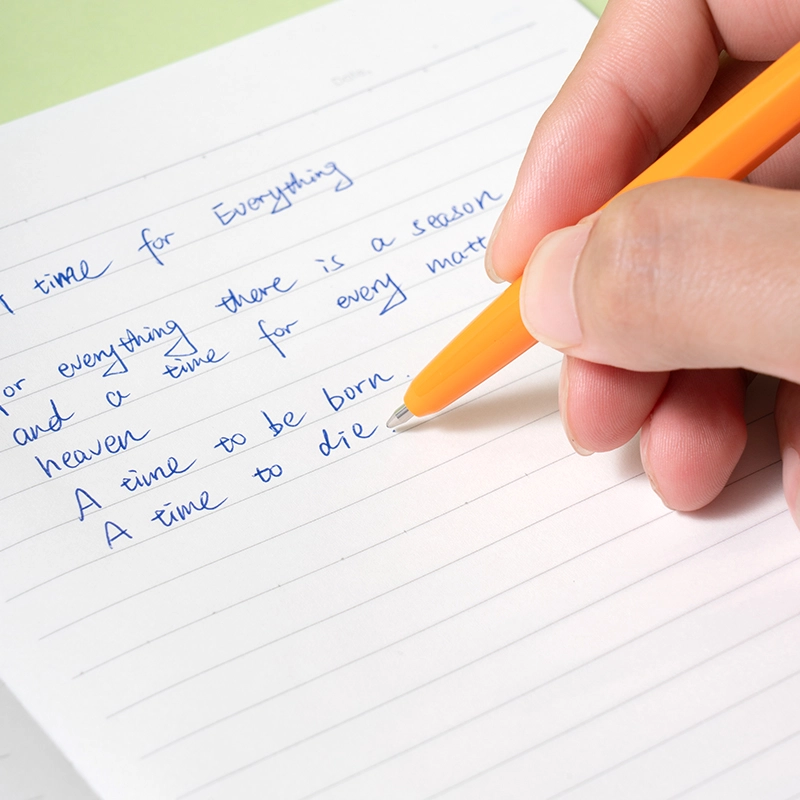 time for Everything
for everything there is a season
and a time for every matt
heaven
A time to be born.
A time to die.